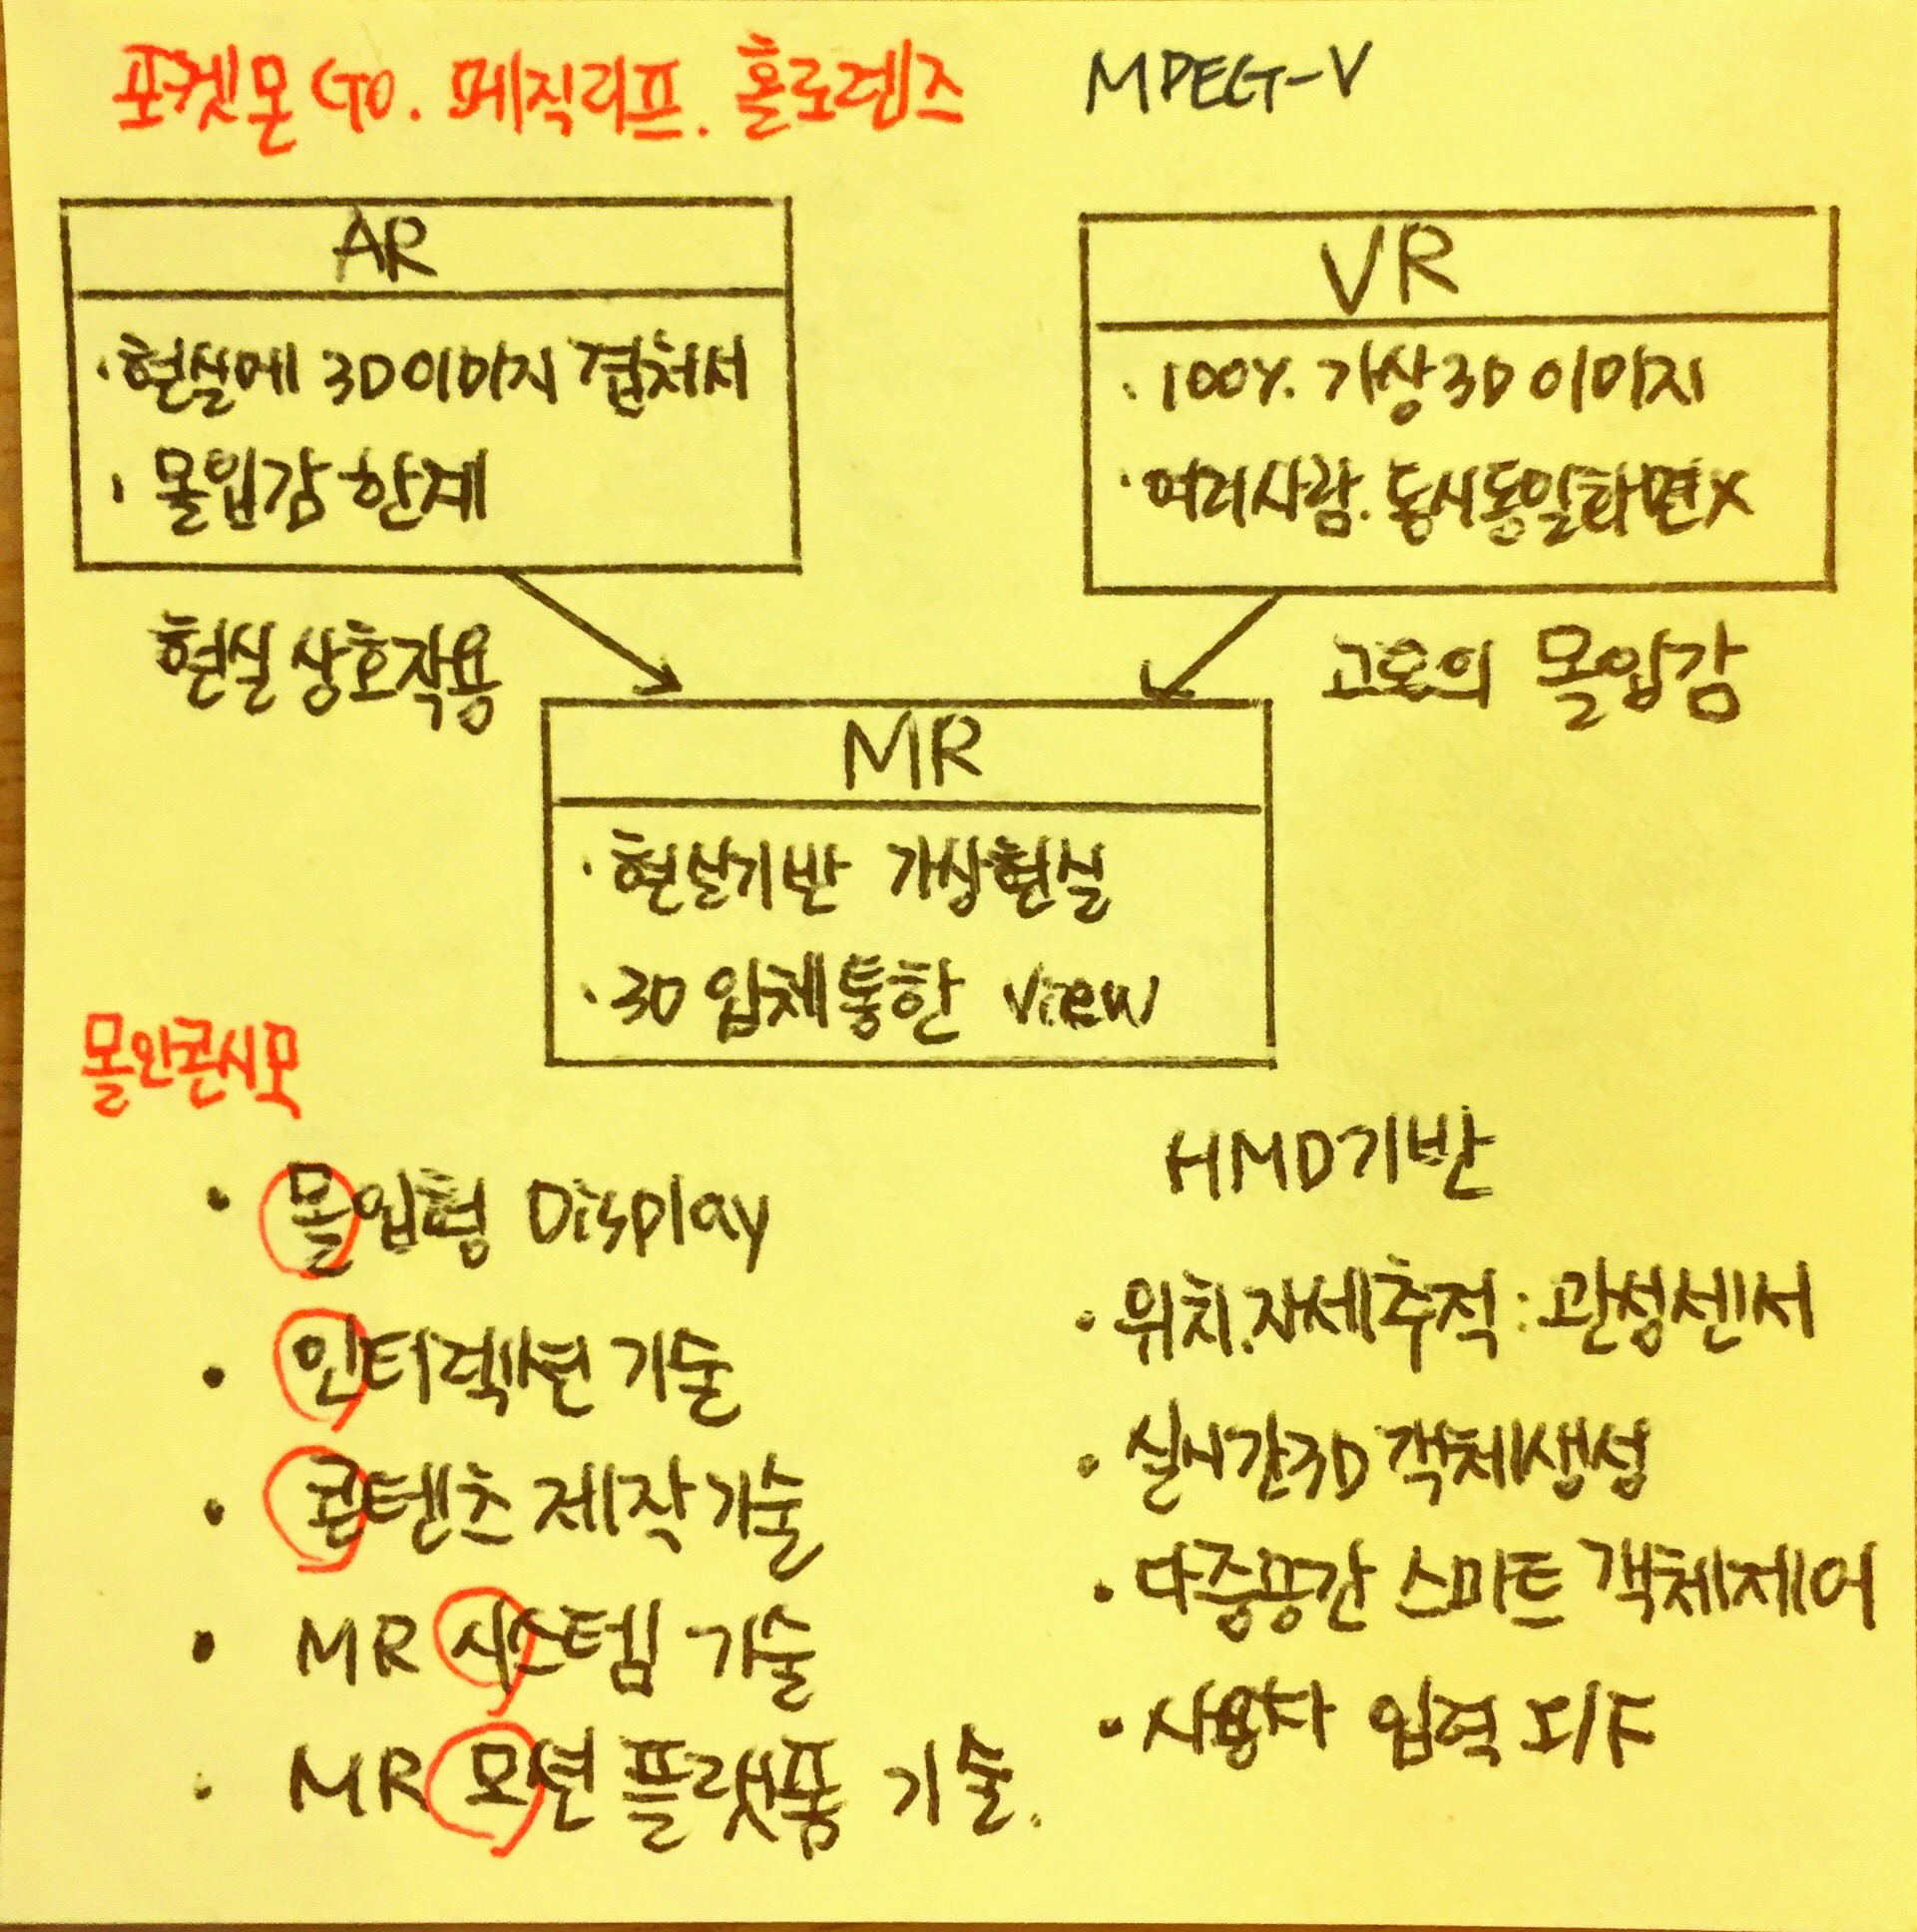 포켓몬 Go. 메직리프. 홀로렌즈 MPEG-V
AR
· 현실에 3D이미지 겹쳐서
· 몰입감 한계
VR
· 100% 가상 3D 이미지
· 여러사람. 동시동일화면X
현실 상호작용
고도의 몰입감
MR
· 현실기반 가상현실
· 3D 입체통한 view
몰인콘시모
· 몰입형 Display
· 인터렉션 기술
· 콘텐츠 제작기술
· MR 시스템 기술
· MR 모션 플랫폼 기술.
HMD기반
· 위치.자세추적 : 관성센서
· 실시간3D 객체생성
· 다중공간 스마트 객체제어
· 사용자 입력 I/F